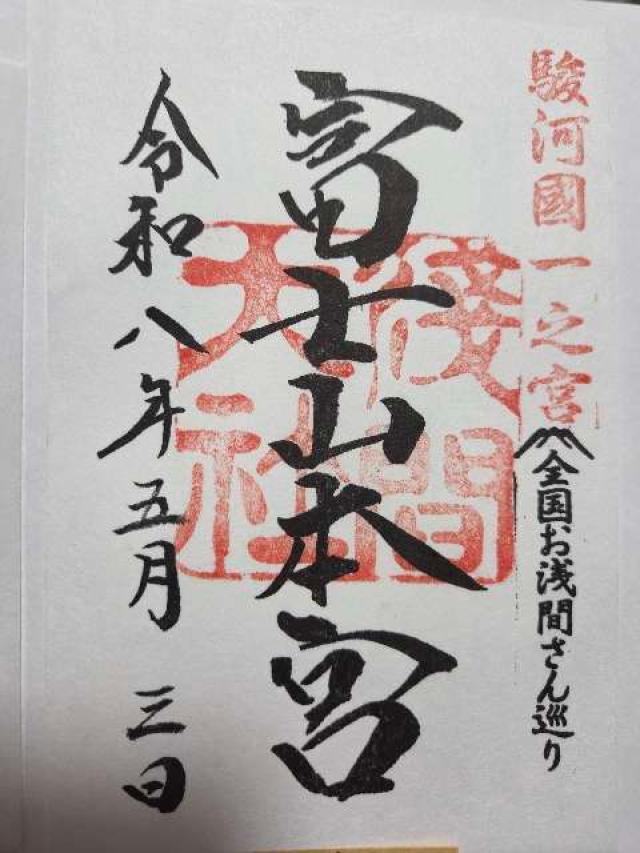 駿河國一之宮
全国お浅間さん巡り
富士山本宮
淺間大社
令和八年五月三日